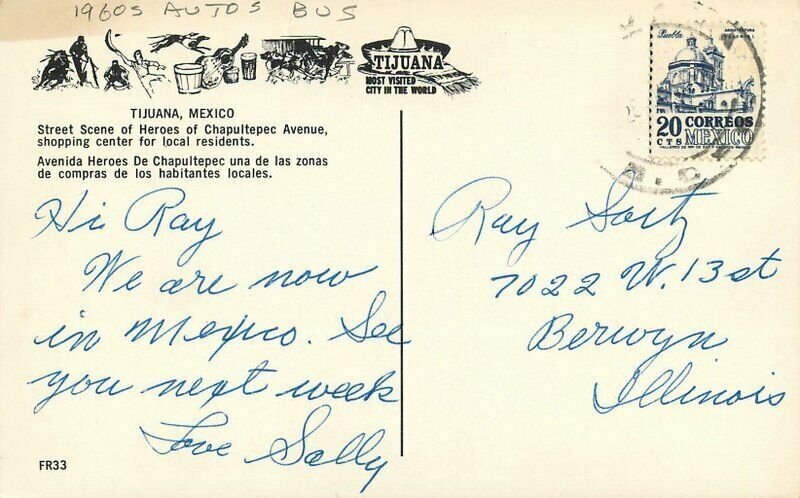 1960s AUTOS BUS
TIJUANA
MOST VISITED
CITY IN THE WORLD
TIJUANA, MEXICO
Street Scene of Heroes of Chapultepec Avenue,
shopping center for local residents.
Avenida Heroes De Chapultepec una de las zonas
de compras de los habitantes locales.
Hi Ray
We are now
in Mexico. See
you next week
Love Sally
FR33
Puebla
ARQUITECTURA
COLONIAL
20 CORREOS
CTS MEXICO
B.C.
Ray
7022 W. 13 st
Berwyn
Illinois